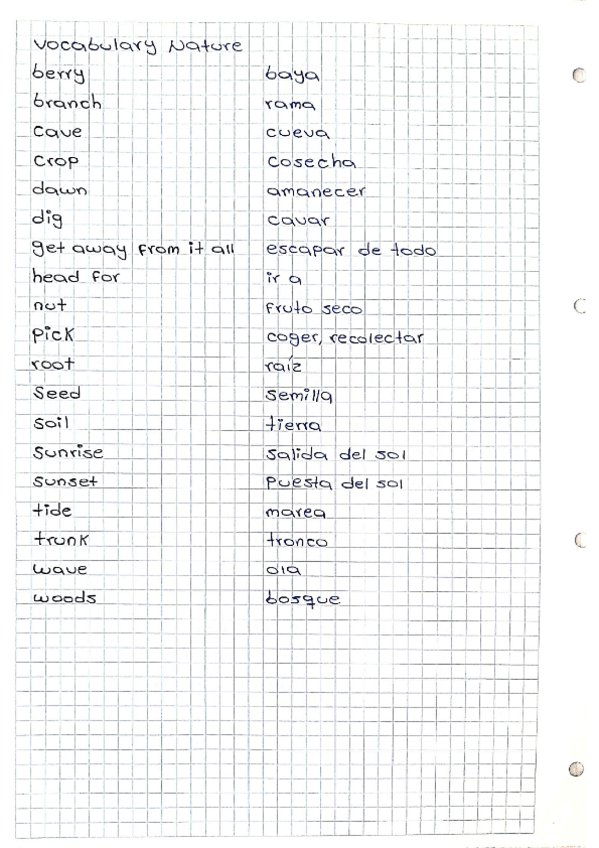 Vocabulary Nature
berry baya
branch rama
cave cueva
crop cosecha
dawn amanecer
dig cavar
get away from it all escapar de todo
head for ir a
nut fruto seco
pick coger, recolectar
root raíz
seed semilla
soil tierra
sunrise salida del sol
sunset puesta del sol
tide marea
trunk tronco
wave ola
woods bosque